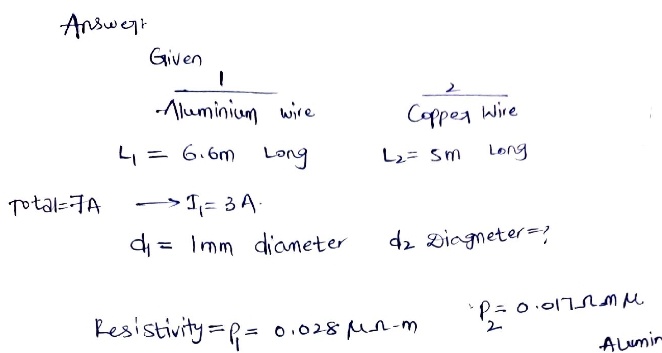 Answer:
Given
1 2
Aluminium wire Copper Wire
L₁ = 6.6m Long L₂= 5m Long
Total=7A → I₁= 3A.
d₁ = 1mm diameter d₂ Diagmeter=?
Resistivity=ρ₁= 0.028 μΩ-m ρ₂= 0.017Ωm μ
Alumin